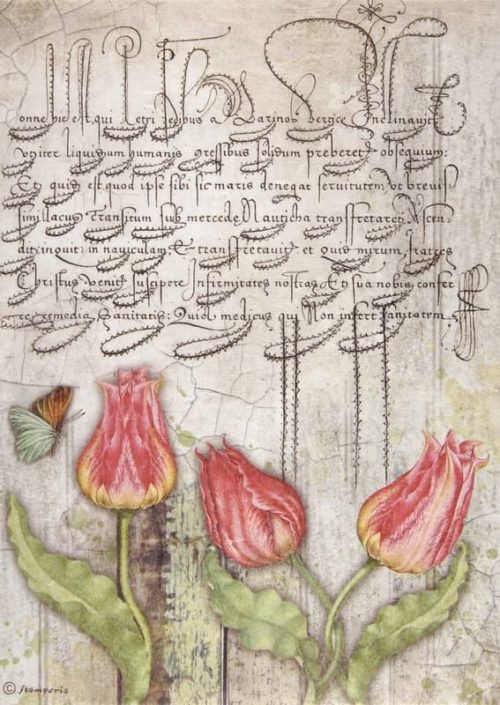 Nonne hic est, qui Petri gressibus a
Uniter liquidum humanis gressibus solidum preberet obsequium:
Et quid est quod ipse sibi sic maris denegat servitutem, ut brevis
simi lacus Transitum sub mercede Nauticha transfretaret. Ascen-
dit, inquit, in naviculam, Et transfretavit, et Quid mirum, fratres
Christus venit suscipere Infirmitates nostras, Et sua nobis confer
re remedia Sanitatis: Quia medicus qui Non infert sanitatem
© Stamperia